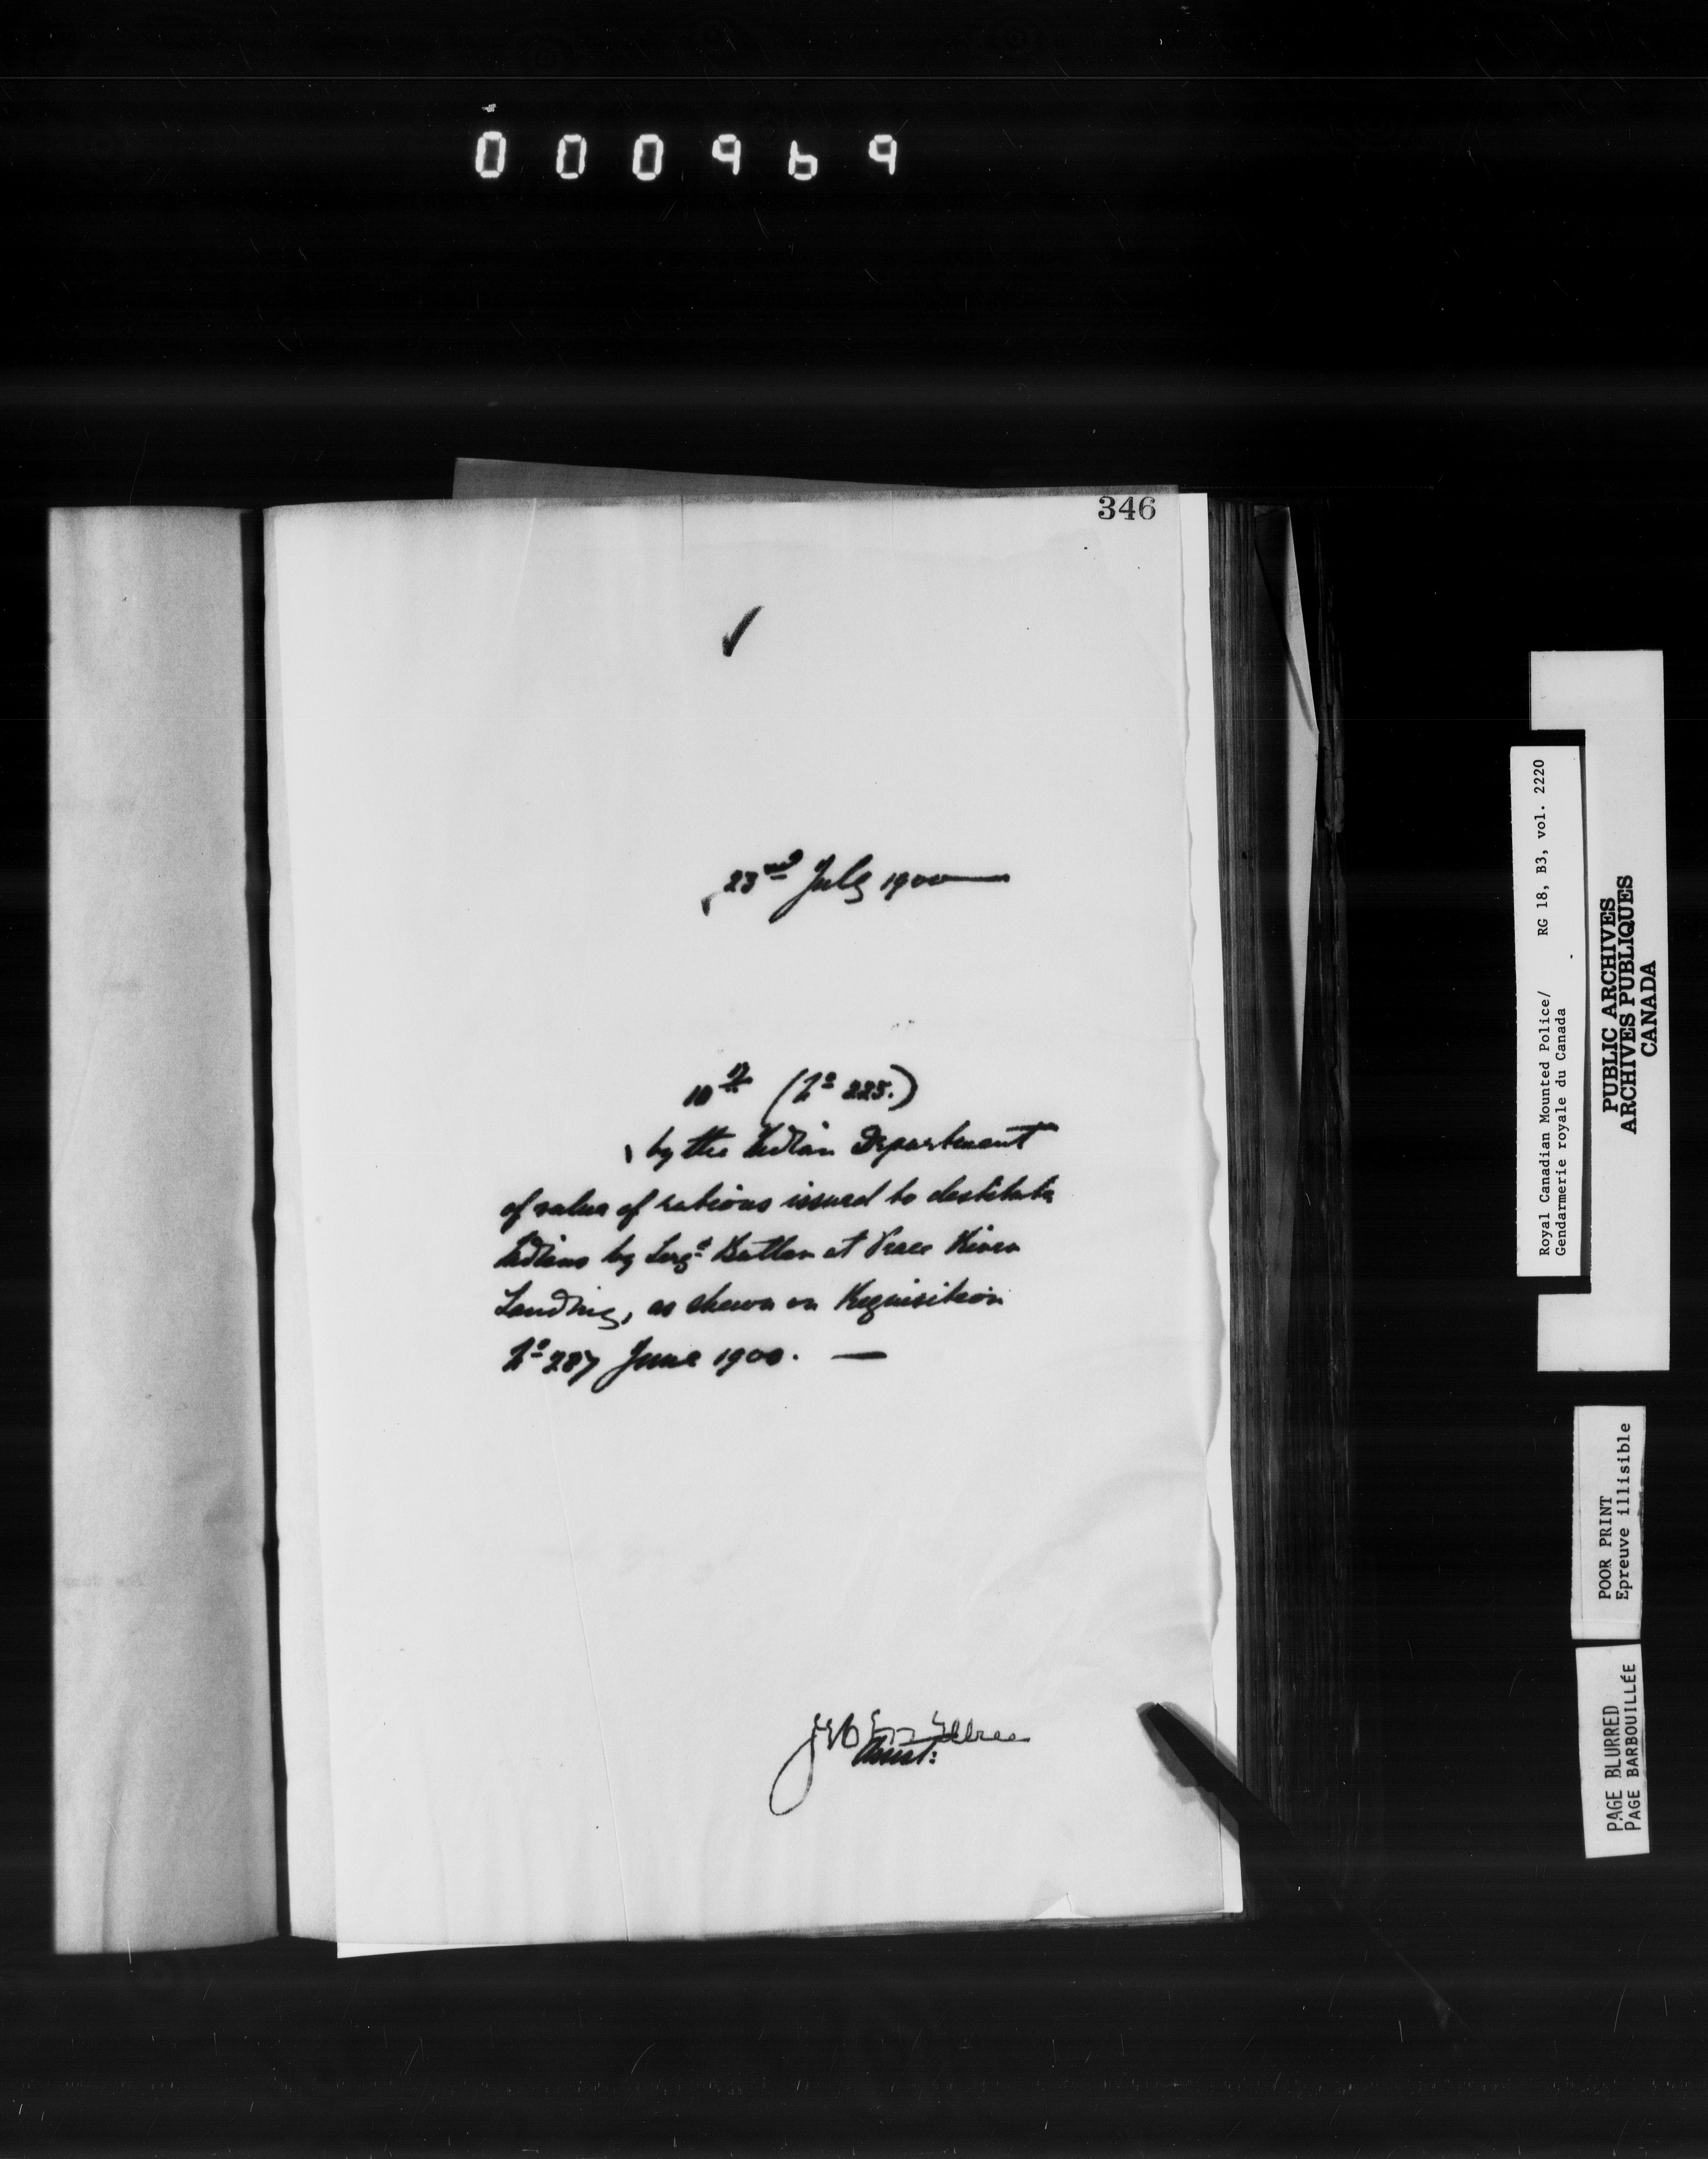 000969
346
✓
23rd July 1900—
10th (No 225.)
, by the Indian Department
of value of rations issued to destitute
Indians by Sergt Butler at Peace River
Landing, as shewn on Requisition
No 287 June 1900. —
Royal Canadian Mounted Police/ RG 18, B3, vol. 2220
Gendarmerie royale du Canada
PUBLIC ARCHIVES
ARCHIVES PUBLIQUES
CANADA
POOR PRINT
Epreuve illisible
PAGE BLURRED
PAGE BARBOUILLÉE